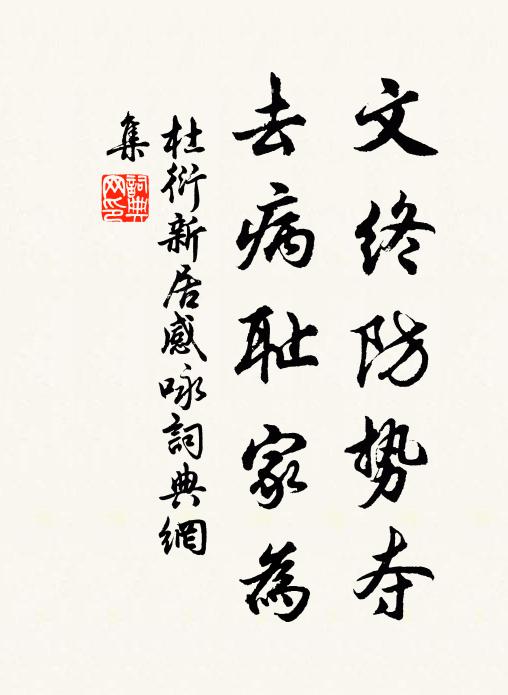 文终防势夺
去病耻家為
杜衍新居感咏詞典網
集
詞典网印